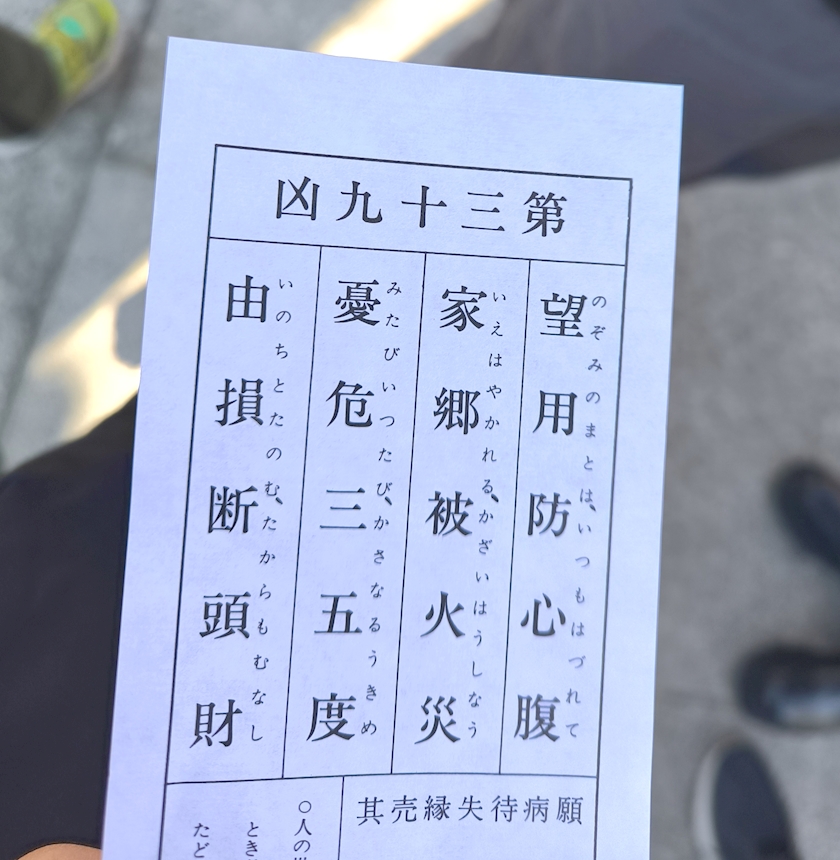 第三十九凶
望用防心腹
のぞみのまとは、いつもはづれて
家郷被火災
いえはやかれる、かざいはうしなう
憂危三五度
みたびいつたび、かさなるうきめ
由損断頭財
いのちとたのむ、たからもむなし
願病待失縁売其
○人の
とき
たど